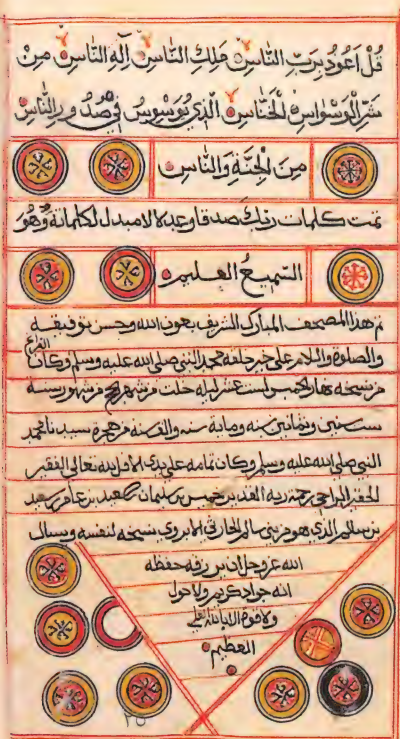 قُلْ اَعُوذُ بِرَبِّ النَّاسِ مَلِكِ النَّاسِ اِلَهِ النَّاسِ مِنْ
شَرِّ الْوَسْوَاسِ الْخَنَّاسِ الَّذِي يُوَسْوِسُ فِي صُدُورِ النَّاسِ
مِنَ الْجِنَّةِ وَالنَّاسِ
تمت كلمات ربك صدقا وعدلا لا مبدل لكلماته وَهُوَ
السَّمِيعُ العليم
تم هذا المصحف المبارك الشريف بعون الله وحسن توفيقه
والصلوة والسلام على خير خلقه محمد النبي صلى الله عليه وسلم وكان الفراغ
من نسخه نهار الخميس لست عشر ليلة خلت من شهر الحج من شهور سنة
ست سنين وثمانين سنة ومائة سنة والف سنة من هجرة سيدنا محمد
النبي صلى الله عليه وسلم وكان تمامه على يدي الاقل لله تعالى الفقير
الحقير الراجي رحمة ربه القدير خميس بن سليمان بن سعيد بن عامر بن سعيد
بن سالم الذي هو من بني سالم الحارثي نسخه لنفسه ويسال
الله عز وجل ان يرزقه حفظه
انه جواد كريم ولا حول
ولا قوة الا بالله العلي
العظيم